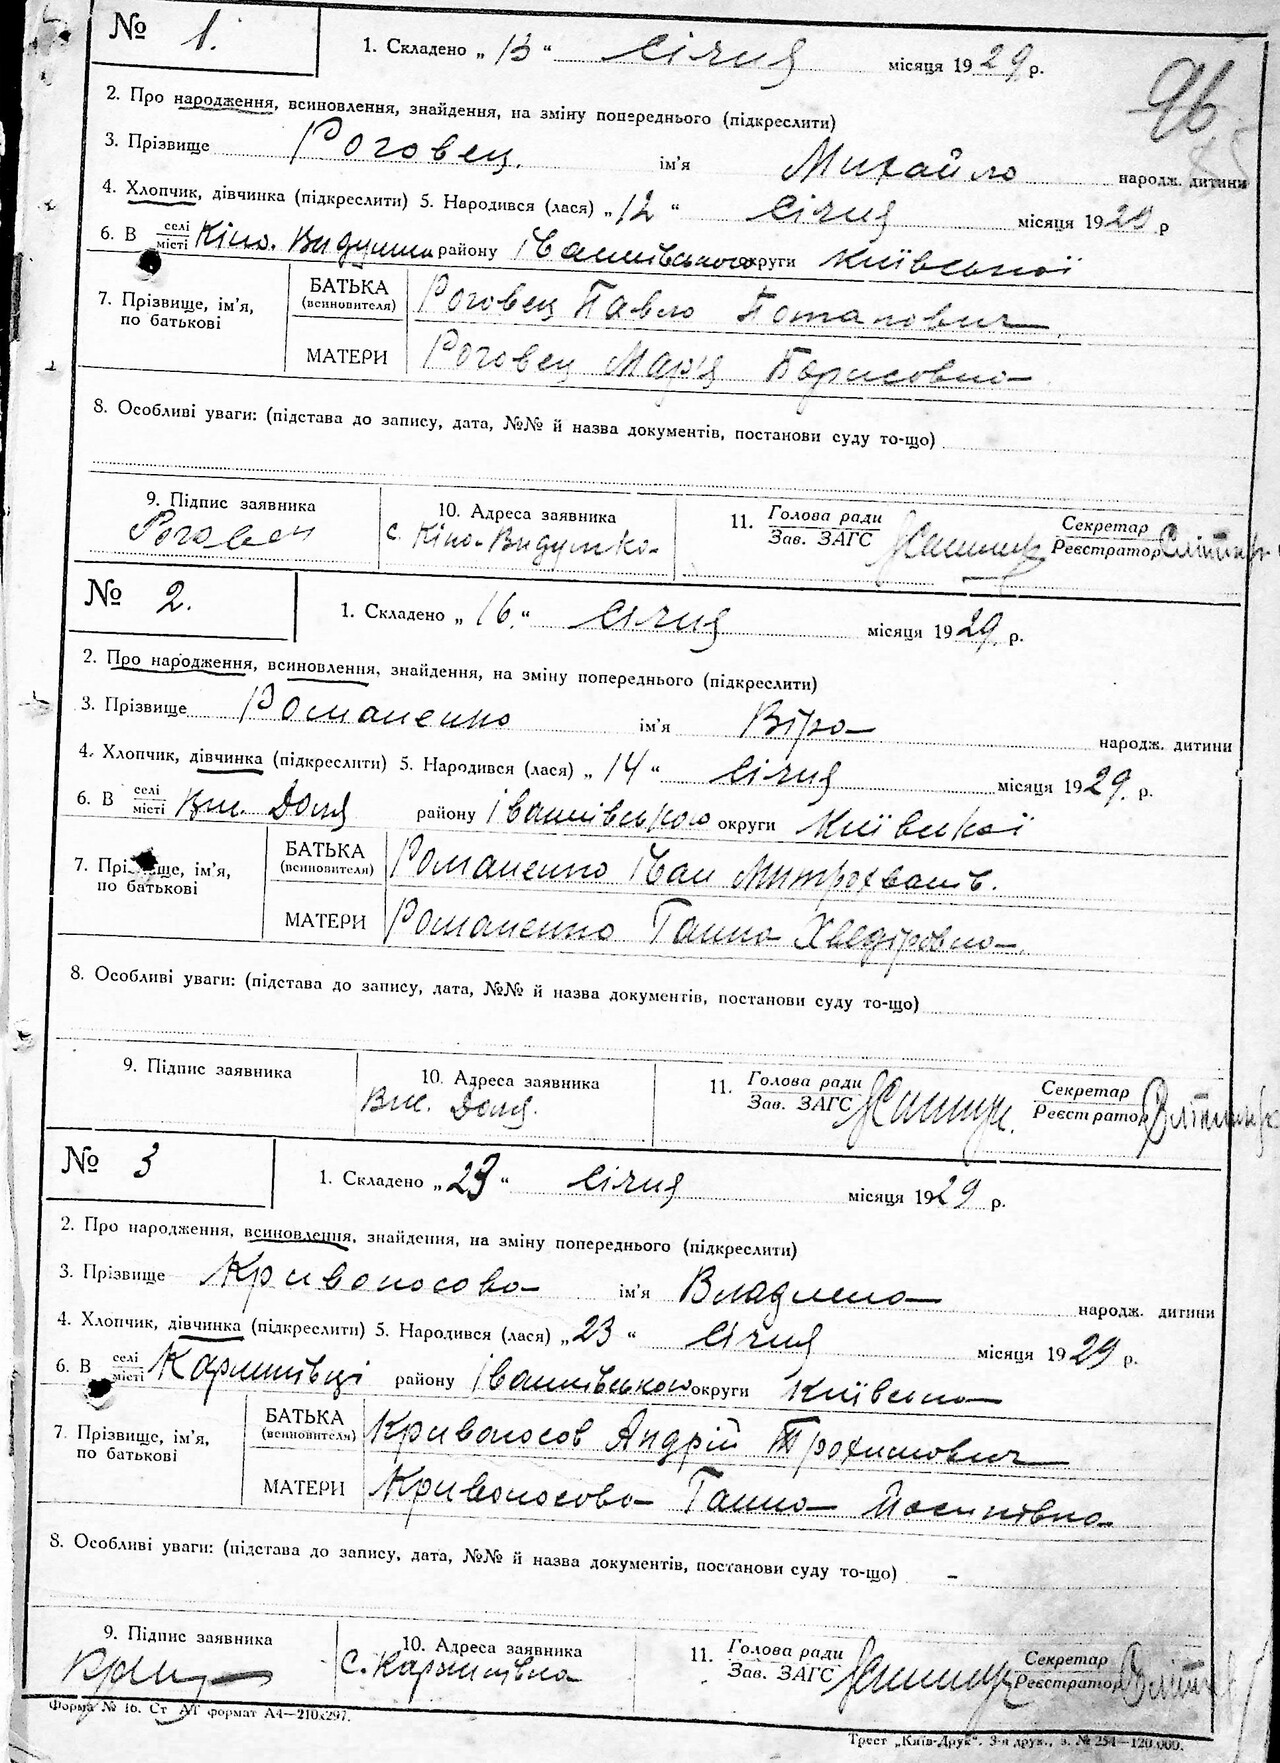 № 1. 1. Складено „ 13 “ Січня місяця 1929 р.
96
2. Про народження, всиновлення, знайдення, на зміну попереднього (підкреслити)
3. Прізвище Роговец. ім’я Михайло народж. дитини
4. Хлопчик, дівчинка (підкреслити) 5. Народився (лася) „ 12 “ Січня місяця 1929 р
6. В селі місті району округи Київської
7. Прізвище, ім’я, по батькові
БАТЬКА (всиновителя) Роговец Павло Потапович
МАТЕРИ Роговец Мар’я Борисовна
8. Особливі уваги: (підстава до запису, дата, №№ й назва документів, постанови суду то-що)
9. Підпис заявника 10. Адреса заявника 11. Голова ради Зав. ЗАГС Секретар Реєстратор
Роговец с.
№ 2. 1. Складено „ 16. “ Січня місяця 1929. р.
2. Про народження, всиновлення, знайдення, на зміну попереднього (підкреслити)
3. Прізвище Романенко ім’я Віра народж. дитини
4. Хлопчик, дівчинка (підкреслити) 5. Народився (лася) „ 14 “ Січня місяця 1929. р.
6. В селі місті Вис. Доля району округи
7. Прізвище, ім’я, по батькові
БАТЬКА (всиновителя) Романенко Іван
МАТЕРИ Романенко Ганна Хведіровна
8. Особливі уваги: (підстава до запису, дата, №№ й назва документів, постанови суду то-що)
9. Підпис заявника 10. Адреса заявника 11. Голова ради Зав. ЗАГС Секретар Реєстратор
Вис. Доля.
№ 3 1. Складено „ 23 “ Січня місяця 1929 р.
2. Про народження, всиновлення, знайдення, на зміну попереднього (підкреслити)
3. Прізвище Кривоносова ім’я Владлена народж. дитини
4. Хлопчик, дівчинка (підкреслити) 5. Народився (лася) „ 23 “ Січня місяця 1929 р.
6. В селі місті району округи
7. Прізвище, ім’я, по батькові
БАТЬКА (всиновителя) Кривоносов Андрій Трохимович
МАТЕРИ Кривоносова Ганна Йосипівна
8. Особливі уваги: (підстава до запису, дата, №№ й назва документів, постанови суду то-що) –
9. Підпис заявника 10. Адреса заявника 11. Голова ради Зав. ЗАГС Секретар Реєстратор
с.
Форма № 16. Ст АТ формат А4—210х297.
Трест „Київ-Друк“. 3-я друк., з. № 254—120.000.